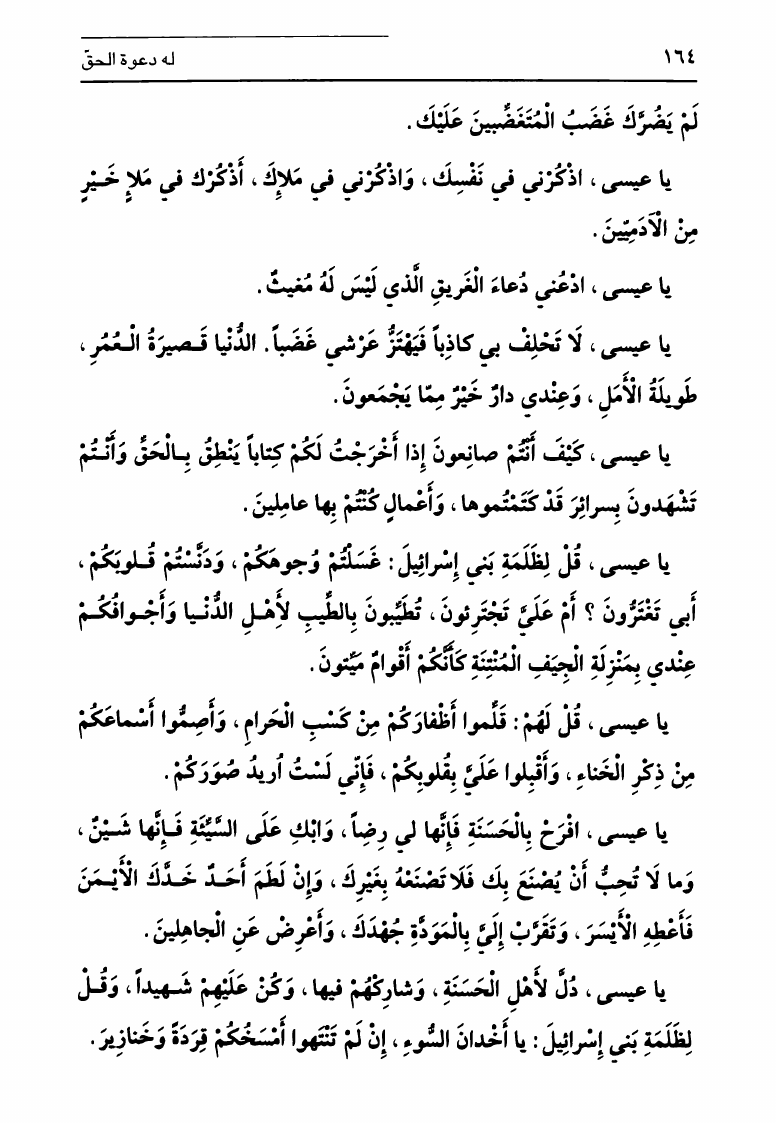 ١٦٤ له دعوة الحقّ
لَمْ يَضُرَّكَ غَضَبُ الْمُتَغَضِّبينَ عَلَيْكَ.
يا عيسى، اذْكُرْني في نَفْسِكَ، وَاذْكُرْني في مَلَإِكَ، أَذْكُرْك في مَلإٍ خَـيْرٍ
مِنْ الْآدَمِيّينَ.
يا عيسى، ادْعُني دُعاءَ الْغَريقِ الَّذي لَيْسَ لَهُ مُغيثٌ.
يا عيسى، لَا تَحْلِفْ بي كاذِباً فَيَهْتَزُّ عَرْشي غَضَباً. الدُّنْيا قَـصيرَةُ الْـعُمُرِ،
طَويلَةُ الْأَمَلِ، وَعِنْدي دارٌ خَيْرٌ مِمّا يَجْمَعونَ.
يا عيسى، كَيْفَ أَنْتُمْ صانِعونَ إِذا أَخْرَجْتُ لَكُمْ كِتاباً يَنْطِقُ بِـالْحَقِّ وَأَنْـتُمْ
تَشْهَدونَ بِسرائِرَ قَدْ كَتَمْتُموها، وَأَعْمالٍ كُنْتُمْ بِها عامِلينَ.
يا عيسى، قُلْ لِظَلَمَةِ بَني إِسْرائيلَ: غَسَلْتُمْ وُجوهَكُمْ، وَدَنَّسْتُمْ قُـلوبَكُمْ،
أَبي تَغْتَرُّونَ؟ أَمْ عَلَيَّ تَجْتَرِئونَ، تُطَيِّبونَ بِالطِّيبِ لأَِهْـلِ الدُّنْـيا وَأَجْـوافُكُـمْ
عِنْدي بِمَنْزِلَةِ الْجِيَفِ الْمُنْتِنَةِ كَأَنَّكُمْ أَقْوامٌ مَيِّتونَ.
يا عيسى، قُلْ لَهُمْ: قَلِّموا أَظْفارَكُمْ مِنْ كَسْبِ الْحَرامِ، وَأَصِمُّوا أَسْماعَكُمْ
مِنْ ذِكْرِ الْخَناءِ، وَأَقْبِلوا عَلَيَّ بِقُلوبِكُمْ، فَإِنّي لَسْتُ اُريدُ صُوَرَكُمْ.
يا عيسى، افْرَحْ بِالْحَسَنَةِ فَإِنَّها لي رِضاً، وَابْكِ عَلَى السَّيِّئَةِ فَـإِنَّها شَـيْنٌ،
وَما لَا تُحِبُّ أَنْ يُصْنَعَ بِكَ فَلَا تَصْنَعْهُ بِغَيْرِكَ، وَإِنْ لَطَمَ أَحَـدٌ خَـدَّكَ الْأَيْـمَنَ
فَأَعْطِهِ الْأَيْسَرَ، وَتَقَرَّبْ إِلَيَّ بِالْمَوَدَّةِ جُهْدَكَ، وَأَعْرِضْ عَنِ الْجاهِلينَ.
يا عيسى، دُلَّ لأَِهْلِ الْحَسَنَةِ، وَشارِكْهُمْ فيها، وَكُنْ عَلَيْهِمْ شَـهيداً، وَقُـلْ
لِظَلَمَةِ بَني إِسْرائيلَ: يا أَخْدانَ السُّوءِ، إِنْ لَمْ تَنْتَهوا أَمْسَخُكُمْ قِرَدَةً وَخَنازيرَ.